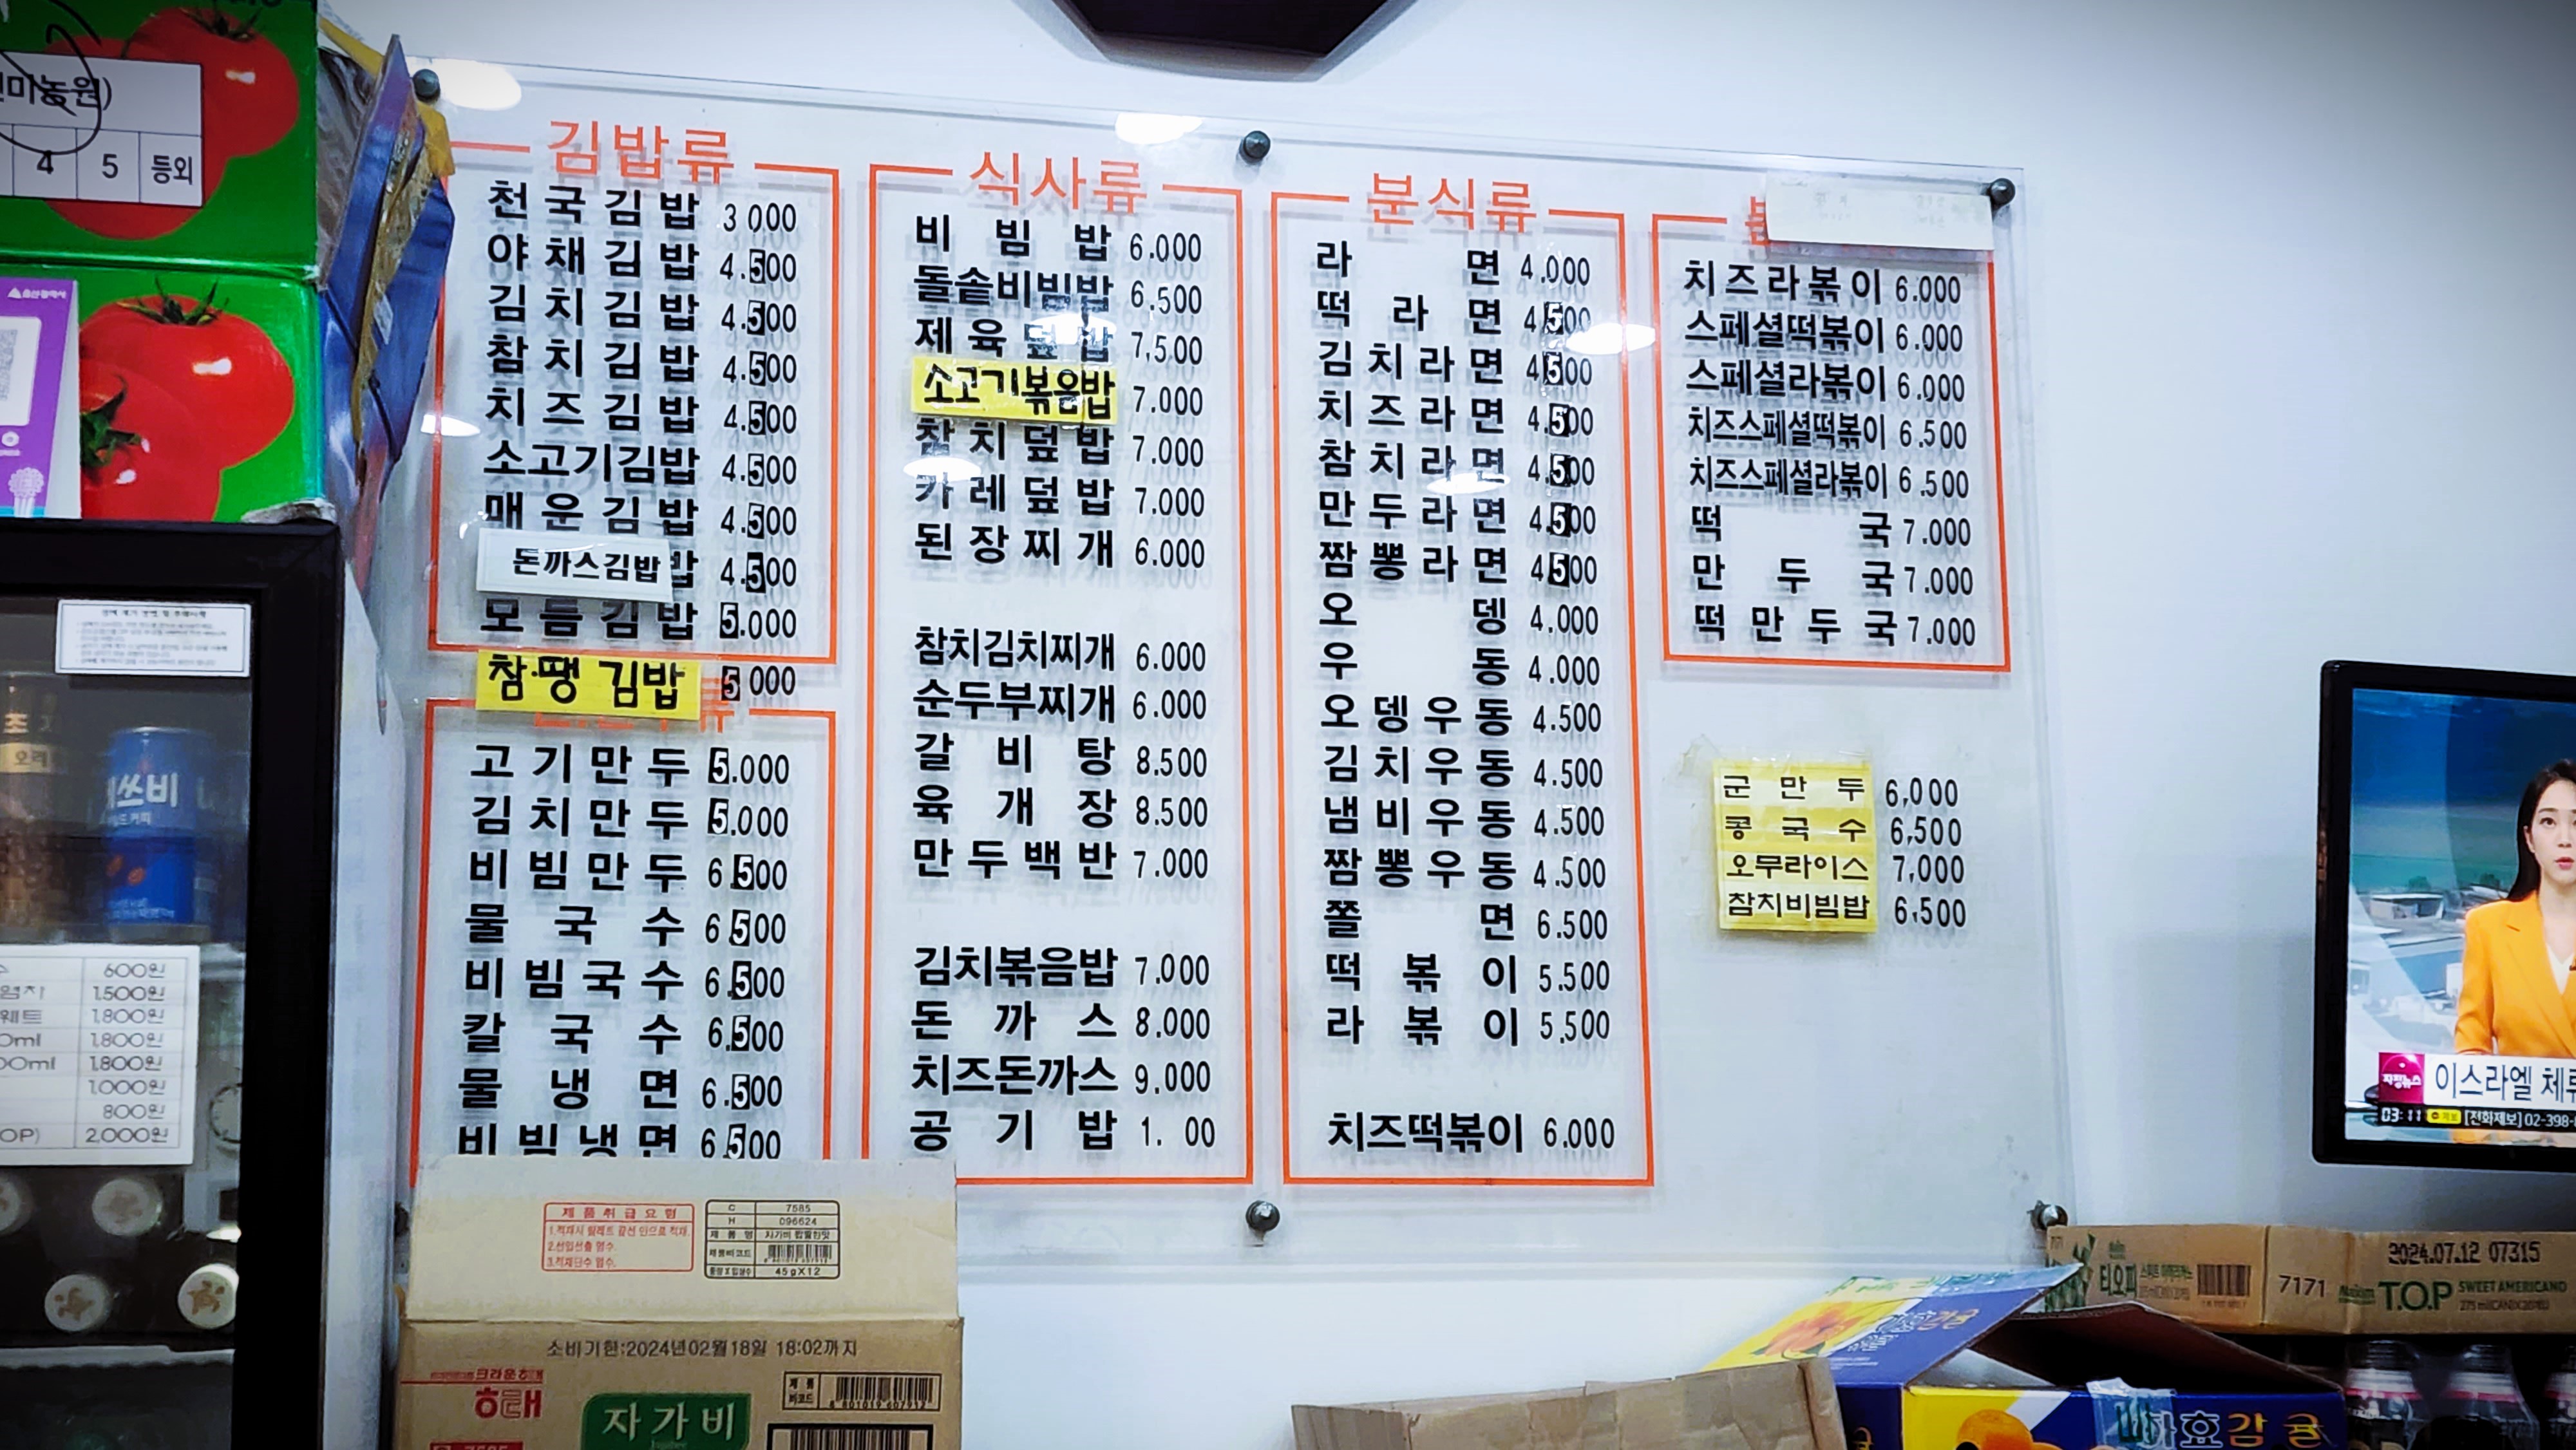 김밥류
천국김밥 3000
야채김밥 4.500
김치김밥 4.500
참치김밥 4.500
치즈김밥 4.500
소고기김밥 4.500
매운김밥 4.500
돈까스김밥 밥 4.500
모듬김밥 5.000
참·땡 김밥 5000
류
고기만두 5.000
김치만두 5.000
비빔만두 6.500
물국수 6.500
비빔국수 6.500
칼국수 6.500
물냉면 6.500
비빔냉면 6.500
식사류
비빔밥 6.000
돌솥비빔밥 6.500
제육덮밥 7,500
소고기볶음밥 7.000
참치덮밥 7.000
카레덮밥 7.000
된장찌개 6.000
참치김치찌개 6.000
순두부찌개 6.000
갈비탕 8.500
육개장 8.500
만두백반 7.000
김치볶음밥 7.000
돈까스 8.000
치즈돈까스 9.000
공기밥 1. 00
분식류
라면 4.000
떡라면 4.500
김치라면 4.500
치즈라면 4.500
참치라면 4.500
만두라면 4.500
짬뽕라면 4.500
오뎅 4.000
우동 4.000
오뎅우동 4.500
김치우동 4.500
냄비우동 4.500
짬뽕우동 4.500
쫄면 6.500
떡볶이 5.500
라볶이 5.500
치즈떡볶이 6.000
치즈라볶이 6.000
스페셜떡볶이 6.000
스페셜라볶이 6.000
치즈스페셜떡볶이 6.500
치즈스페셜라볶이 6.500
떡국 7.000
만두국 7.000
떡만두국 7.000
군만두 6,000
콩국수 6,500
오무라이스 7,000
참치비빔밥 6,500
미농원)
4 5 등외
쓰비
600원
1.500원
웨트 1.800원
0ml 1.800원
00ml 1.800원
1.000원
800원
OP) 2.000원
제품취급요령
2.선입선출 엄수.
C 7585
H 096624
제품명
제품바코드
45gX12
소비기한:2024년02월18일 18:02까지
크라운해
해태
자가비
제품
바코드
이스라엘 체류
03:11 제보 [전화제보] 02-398-
2024.07.12 07315
티오피
7171
Maxim T.O.P SWEET AMERICANO
하효감귤